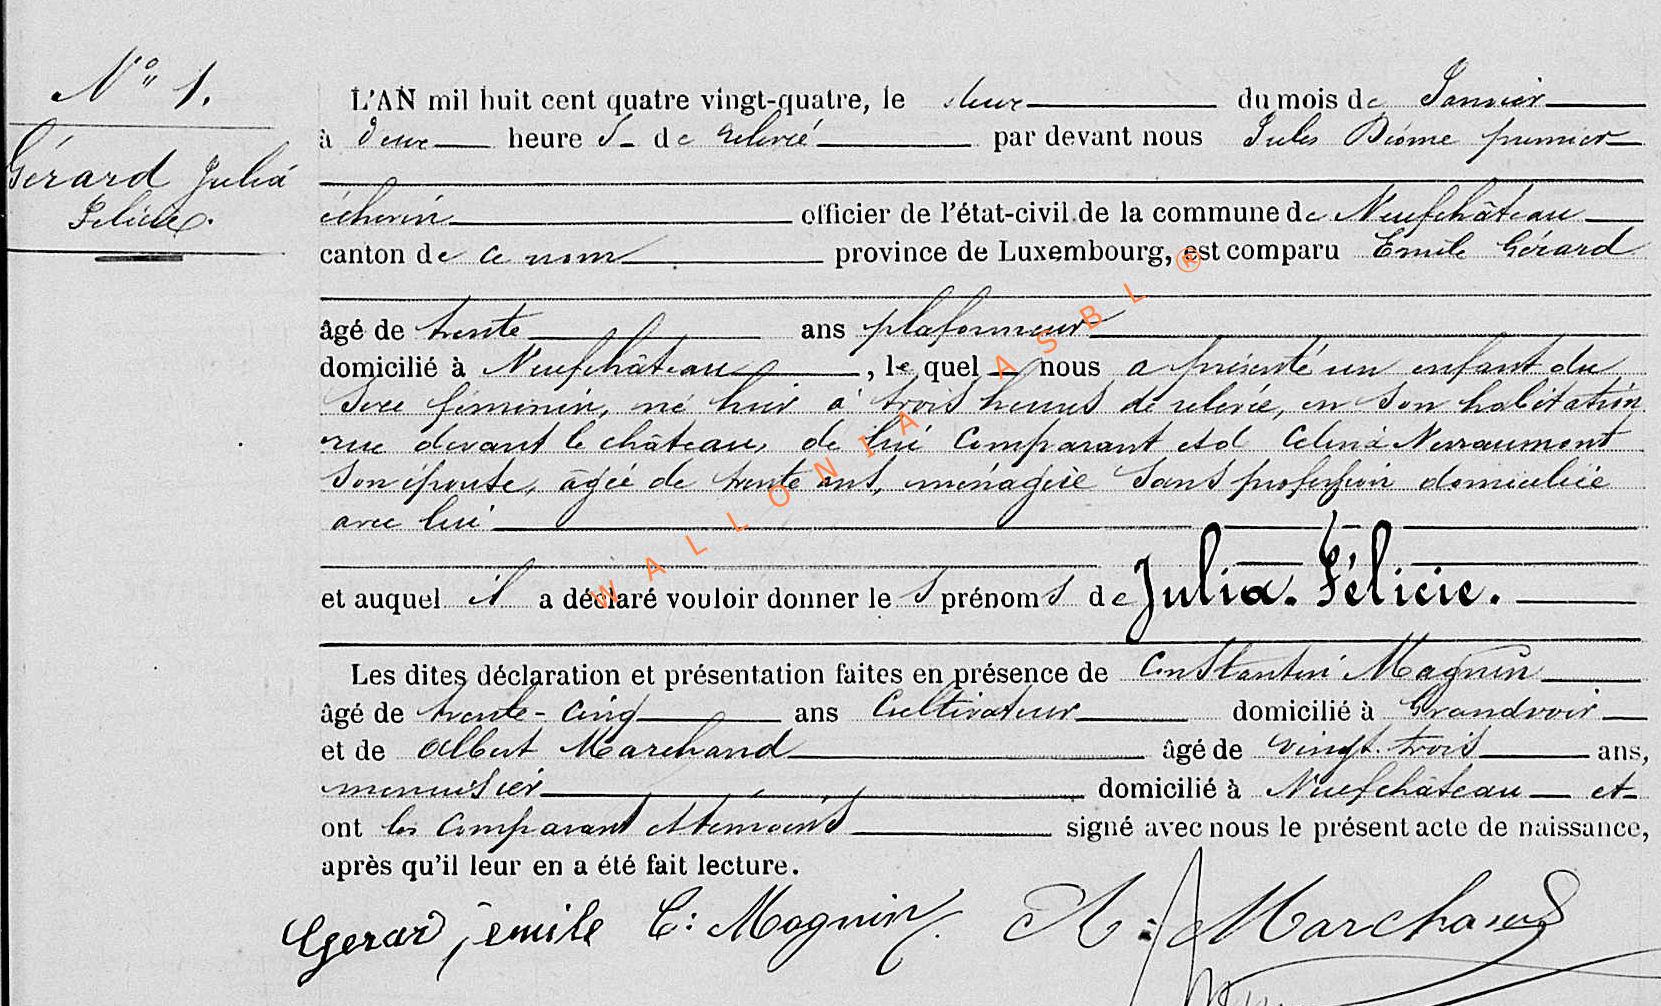 N° 1.
Gérard Julia
Félicie.
L'AN mil huit cent quatre vingt-quatre, le deux du mois de Janvier
à deux heure s de relevée par devant nous Jules Diome premier
échevin officier de l'état-civil de la commune de Neufchâteau
canton de ce nom province de Luxembourg, est comparu Emile Gérard
âgé de trente ans plafonneur
domicilié à Neufchâteau, le quel nous a présenté un enfant du
sexe féminin, né hier à trois heures de relevée, en son habitation
rue devant le château, de lui comparant et d Celina Nerraumont
son épouse, âgée de trente ans, ménagère sans profession domiciliée
avec lui
et auquel il a déclaré vouloir donner le s prénom s de Julia. Félicie.
Les dites déclaration et présentation faites en présence de Constantin Magnin
âgé de trente-cinq ans Cultivateur domicilié à Grandvoir
et de Albert Marchand âgé de vingt-trois ans,
menuisier domicilié à Neufchâteau et
ont les comparant et témoins signé avec nous le présent acte de naissance,
après qu'il leur en a été fait lecture.
Gerard, emile C: Magnin. A: Marchand
WALLONIA ASBL ®